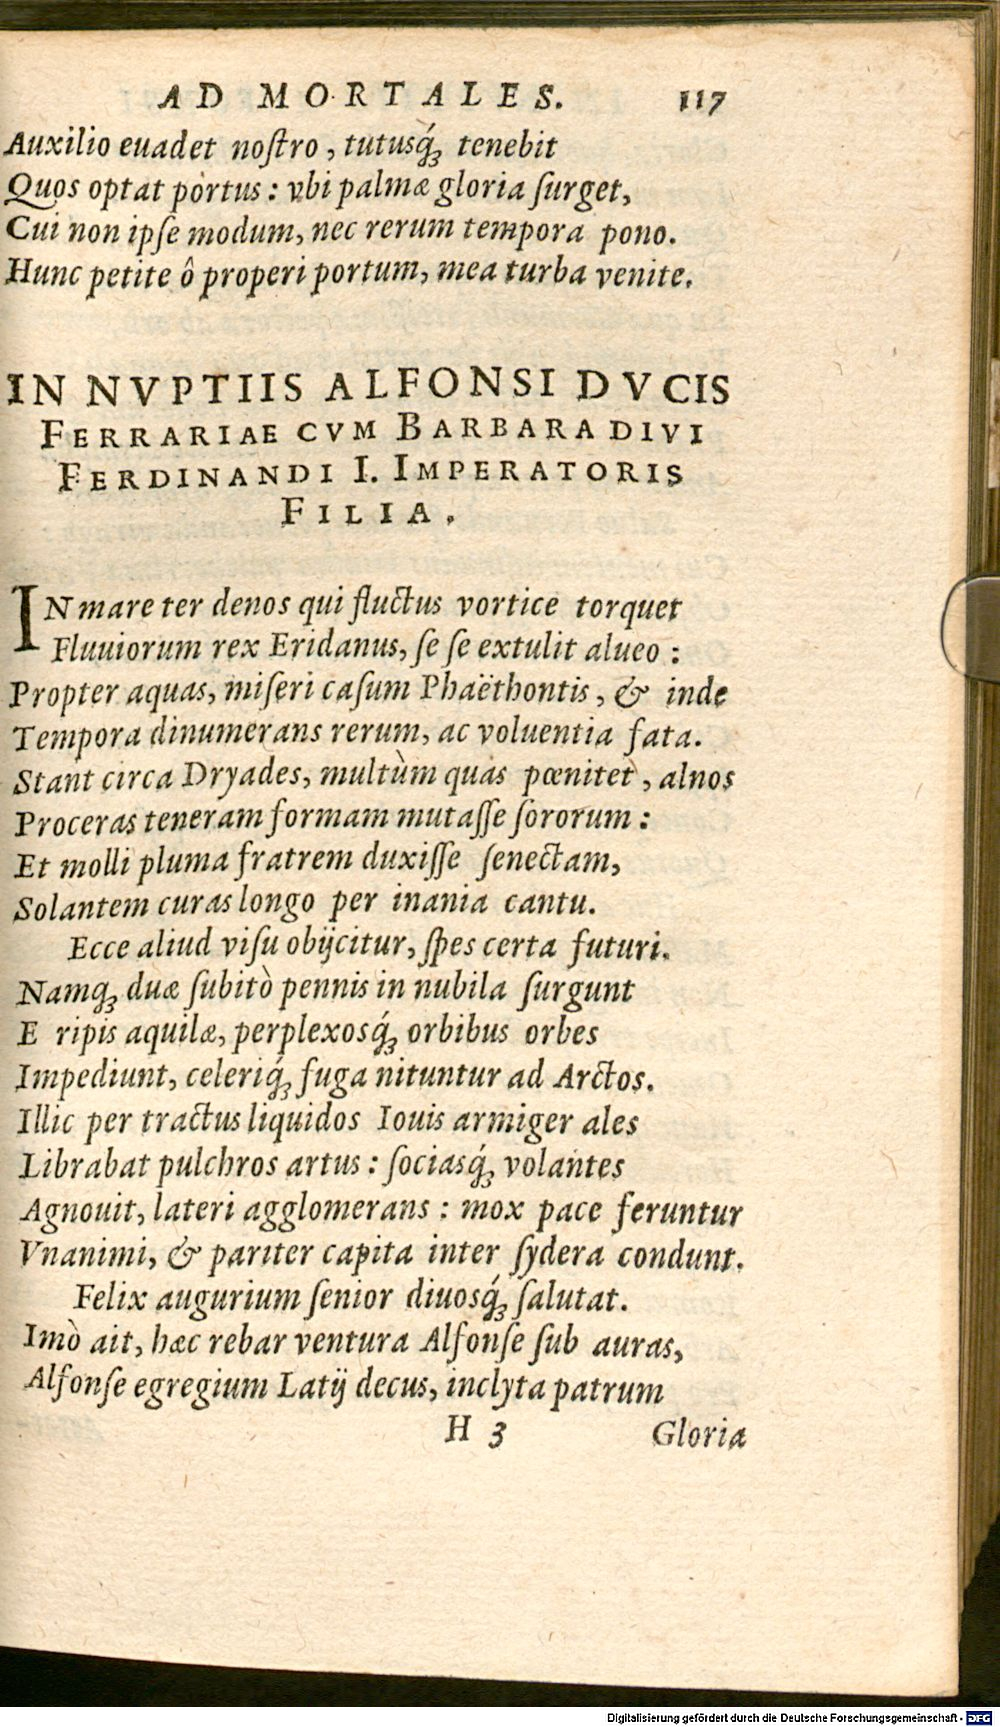 AD MORTALES. 117
Auxilio euadet noſtro, tutusq́ꝫ tenebit
Quos optat portus: vbi palmæ gloria ſurget,
Cui non ipſe modum, nec rerum tempora pono.
Hunc petite ô properi portum, mea turba venite.
IN NVPTIIS ALFONSI DVCIS
FERRARIAE CVM BARBARA DIVI
FERDINANDI I. IMPERATORIS
FILIA.
IN mare ter denos qui fluctus vortice torquet
Fluuiorum rex Eridanus, ſe ſe extulit alueo:
Propter aquas, miſeri caſum Phaëthontis, & inde
Tempora dinumerans rerum, ac voluentia fata.
Stant circa Dryades, multùm quas pœnitet, alnos
Proceras teneram formam mutaſſe ſororum:
Et molli pluma fratrem duxiſſe ſenectam,
Solantem curas longo per inania cantu.
Ecce aliud viſu obijcitur, ſpes certa futuri.
Namqꝫ duæ ſubitò pennis in nubila ſurgunt
E ripis aquilæ, perplexosq́ꝫ orbibus orbes
Impediunt, celeriq́ꝫ fuga nituntur ad Arctos.
Illic per tractus liquidos Iouis armiger ales
Librabat pulchros artus: ſociasq́ꝫ volantes
Agnouit, lateri agglomerans: mox pace feruntur
Vnanimi, & pariter capita inter ſydera condunt.
Felix augurium ſenior diuosq́ꝫ ſalutat.
Imò ait, hæc rebar ventura Alfonſe ſub auras,
Alfonſe egregium Latij decus, inclyta patrum
H 3 Gloria
Digitalisierung gefördert durch die Deutsche Forschungsgemeinschaft - DFG